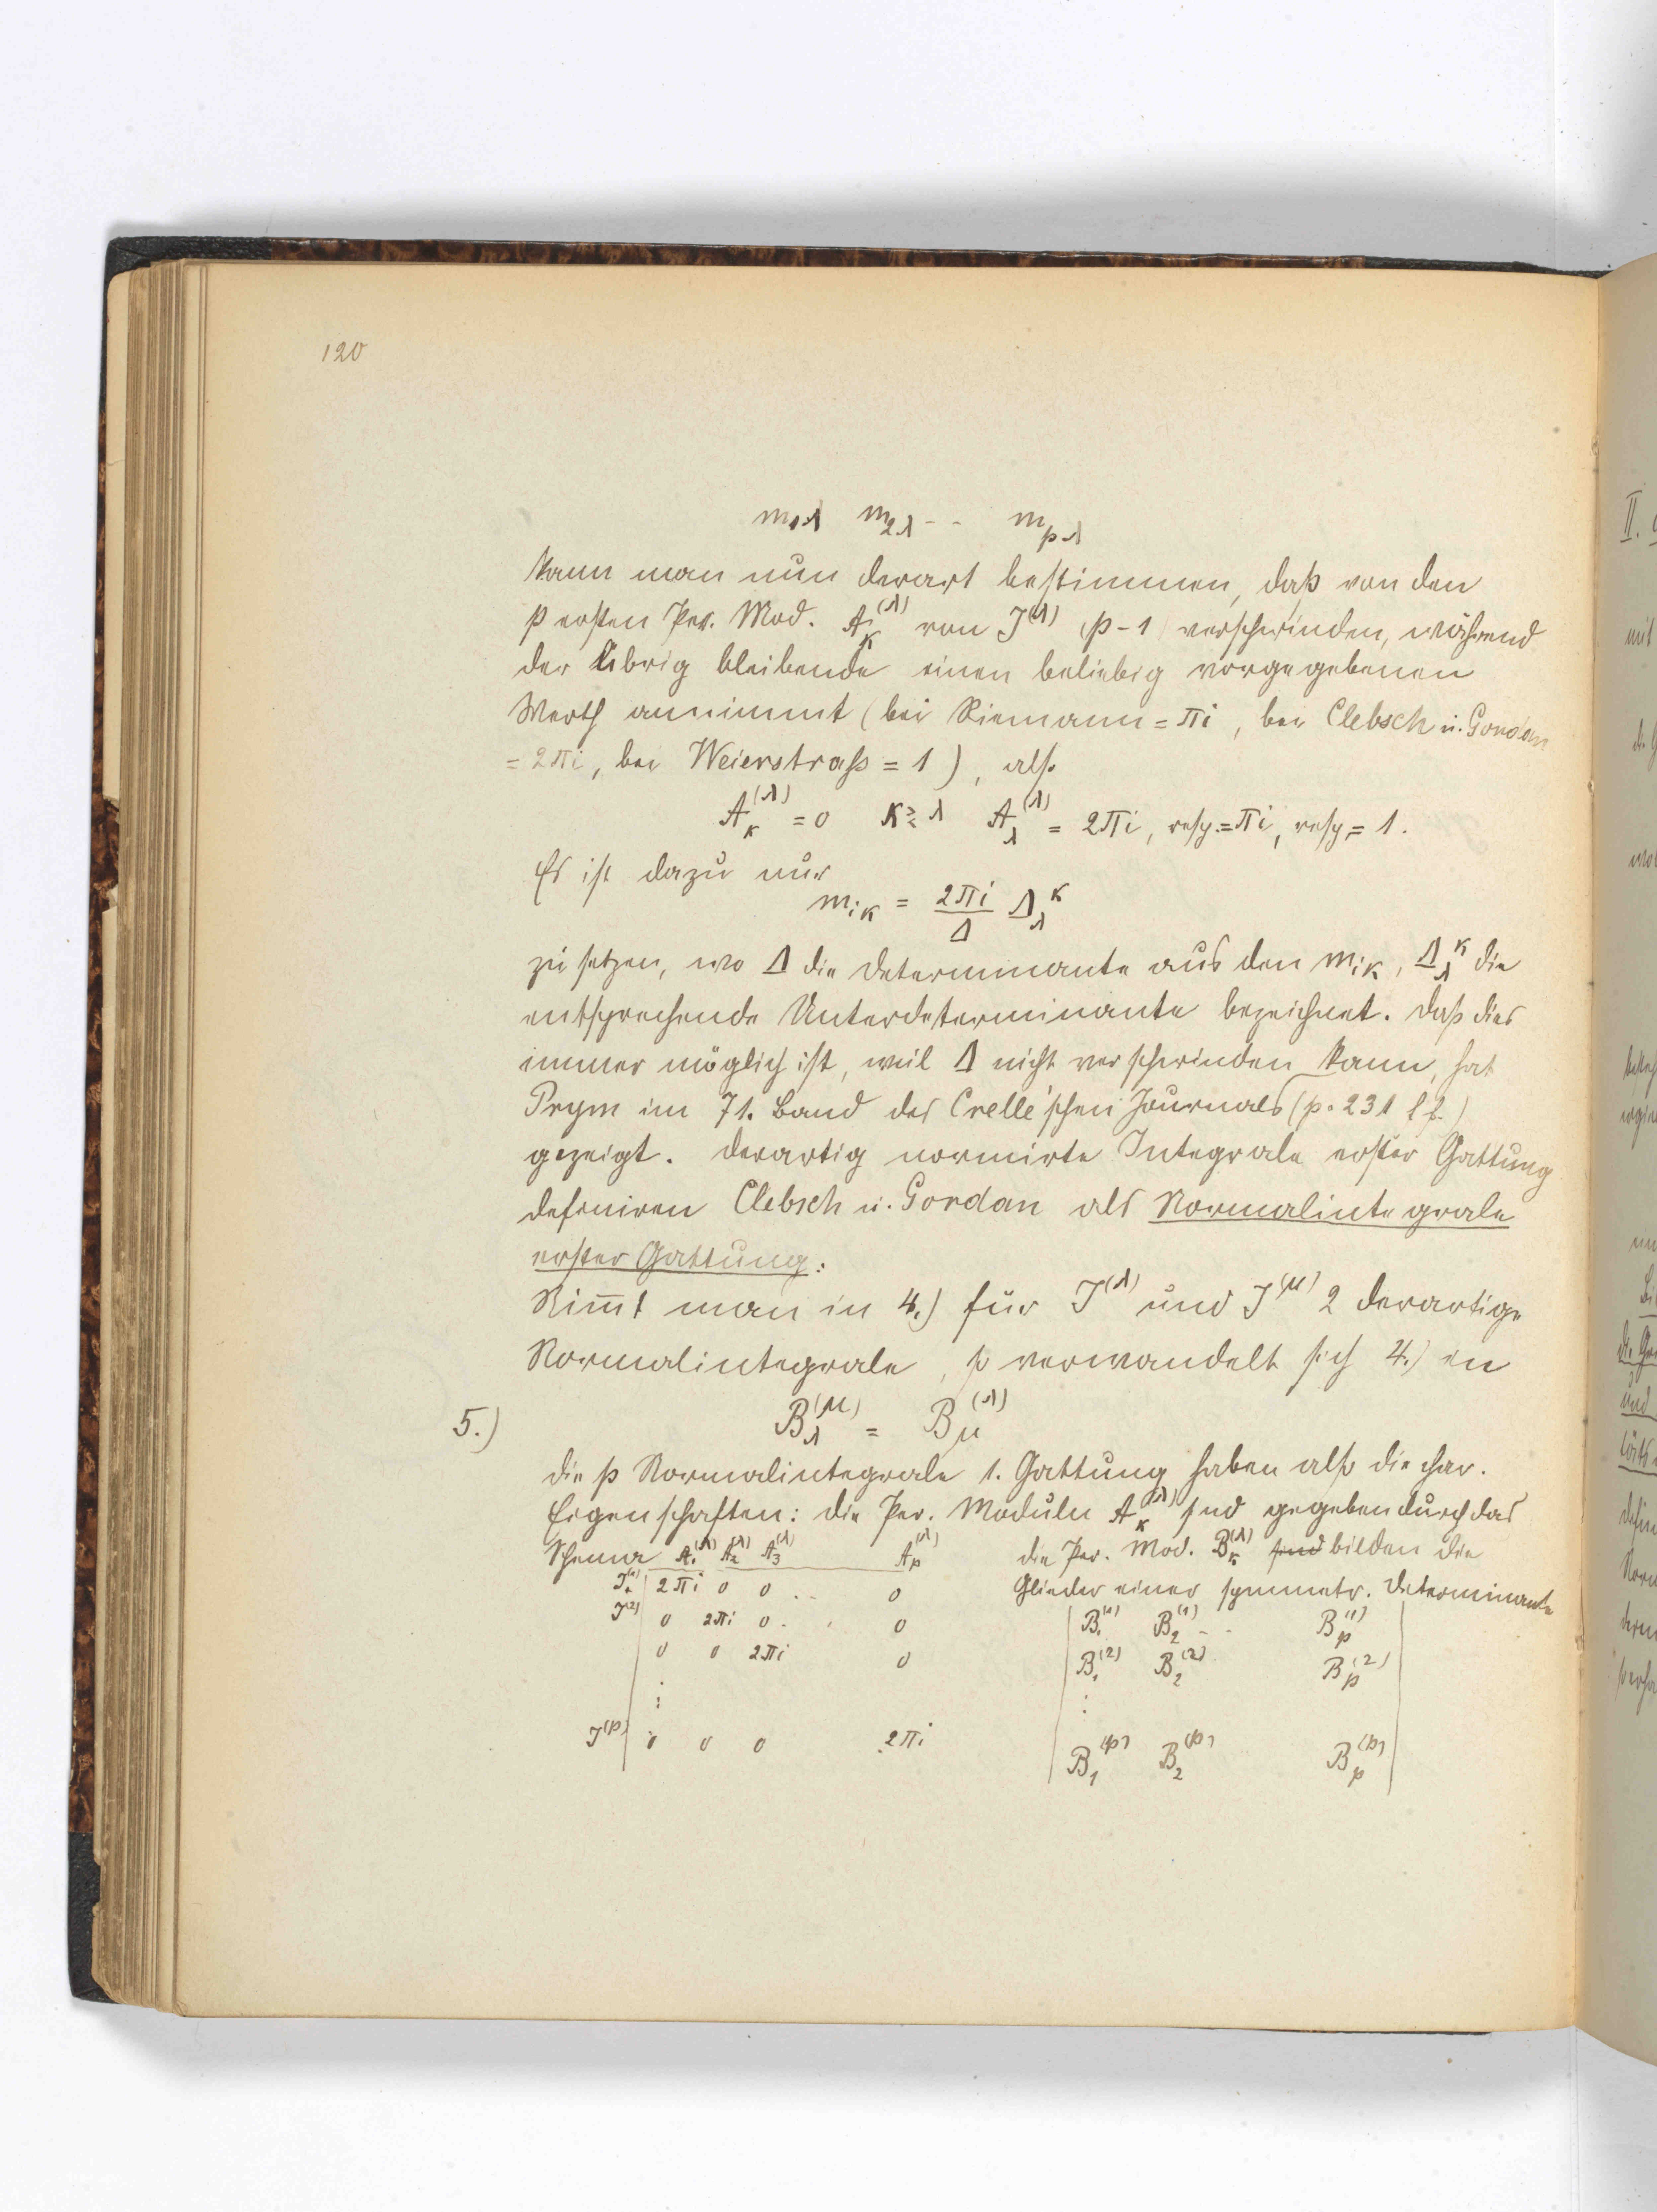 120
m₁λ m₂λ - - m_pλ
kann man nun derart bestimmen, daß von den
p ersten Per. Mod. A_κ^(λ) von J^(λ) (p-1) verschwinden, während
der übrig bleibende einen beliebig vorgegebenen
Werth annimmt (bei Riemann = πi, bei Clebsch u. Gordan
= 2πi, bei Weierstraß = 1), also
A_κ^(λ) = 0 κ ≷ λ A_λ^(λ) = 2πi, resp. = πi, resp. = 1.
Es ist dazu nur
m_iκ = 2πi/Δ Δ_λ^κ
zu setzen, wo Δ die Determinante aus den m_iκ, Δ_λ^κ die
entsprechende Unterdeterminante bezeichnet. Daß dies
immer möglich ist, weil Δ nicht verschwinden kann, hat
Prym im 71. Band des Crelle'schen Journals (p. 231 ff.)
gezeigt. Derartig normirte Integrale erster Gattung
definiren Clebsch u. Gordan als Normalintegrale
erster Gattung.
Nim̅t man in 4.) für J^(λ) und J^(μ) 2 derartige
Normalintegrale, so verwandelt sich 4.) in
5.) B_λ^(μ) = B_μ^(λ)
Die p Normalintegrale 1. Gattung haben also die char.
Eigenschaften: Die Per. Moduln A_κ^(λ) sind gegeben durch das
Schema A₁^(λ) A₂^(λ) A₃^(λ) A_p^(λ)
J^(1) 2πi 0 0 . . 0
J^(2) 0 2πi 0 . . 0
0 0 2πi 0
:
J^(p) 0 0 0 2πi
die Per. Mod. B_κ^(λ) sind bilden die
Glieder einer symmetr. Determinante
B₁^(1) B₂^(1) - - B_p^(1)
B₁^(2) B₂^(2) B_p^(2)
:
B₁^(p) B₂^(p) B_p^(p)